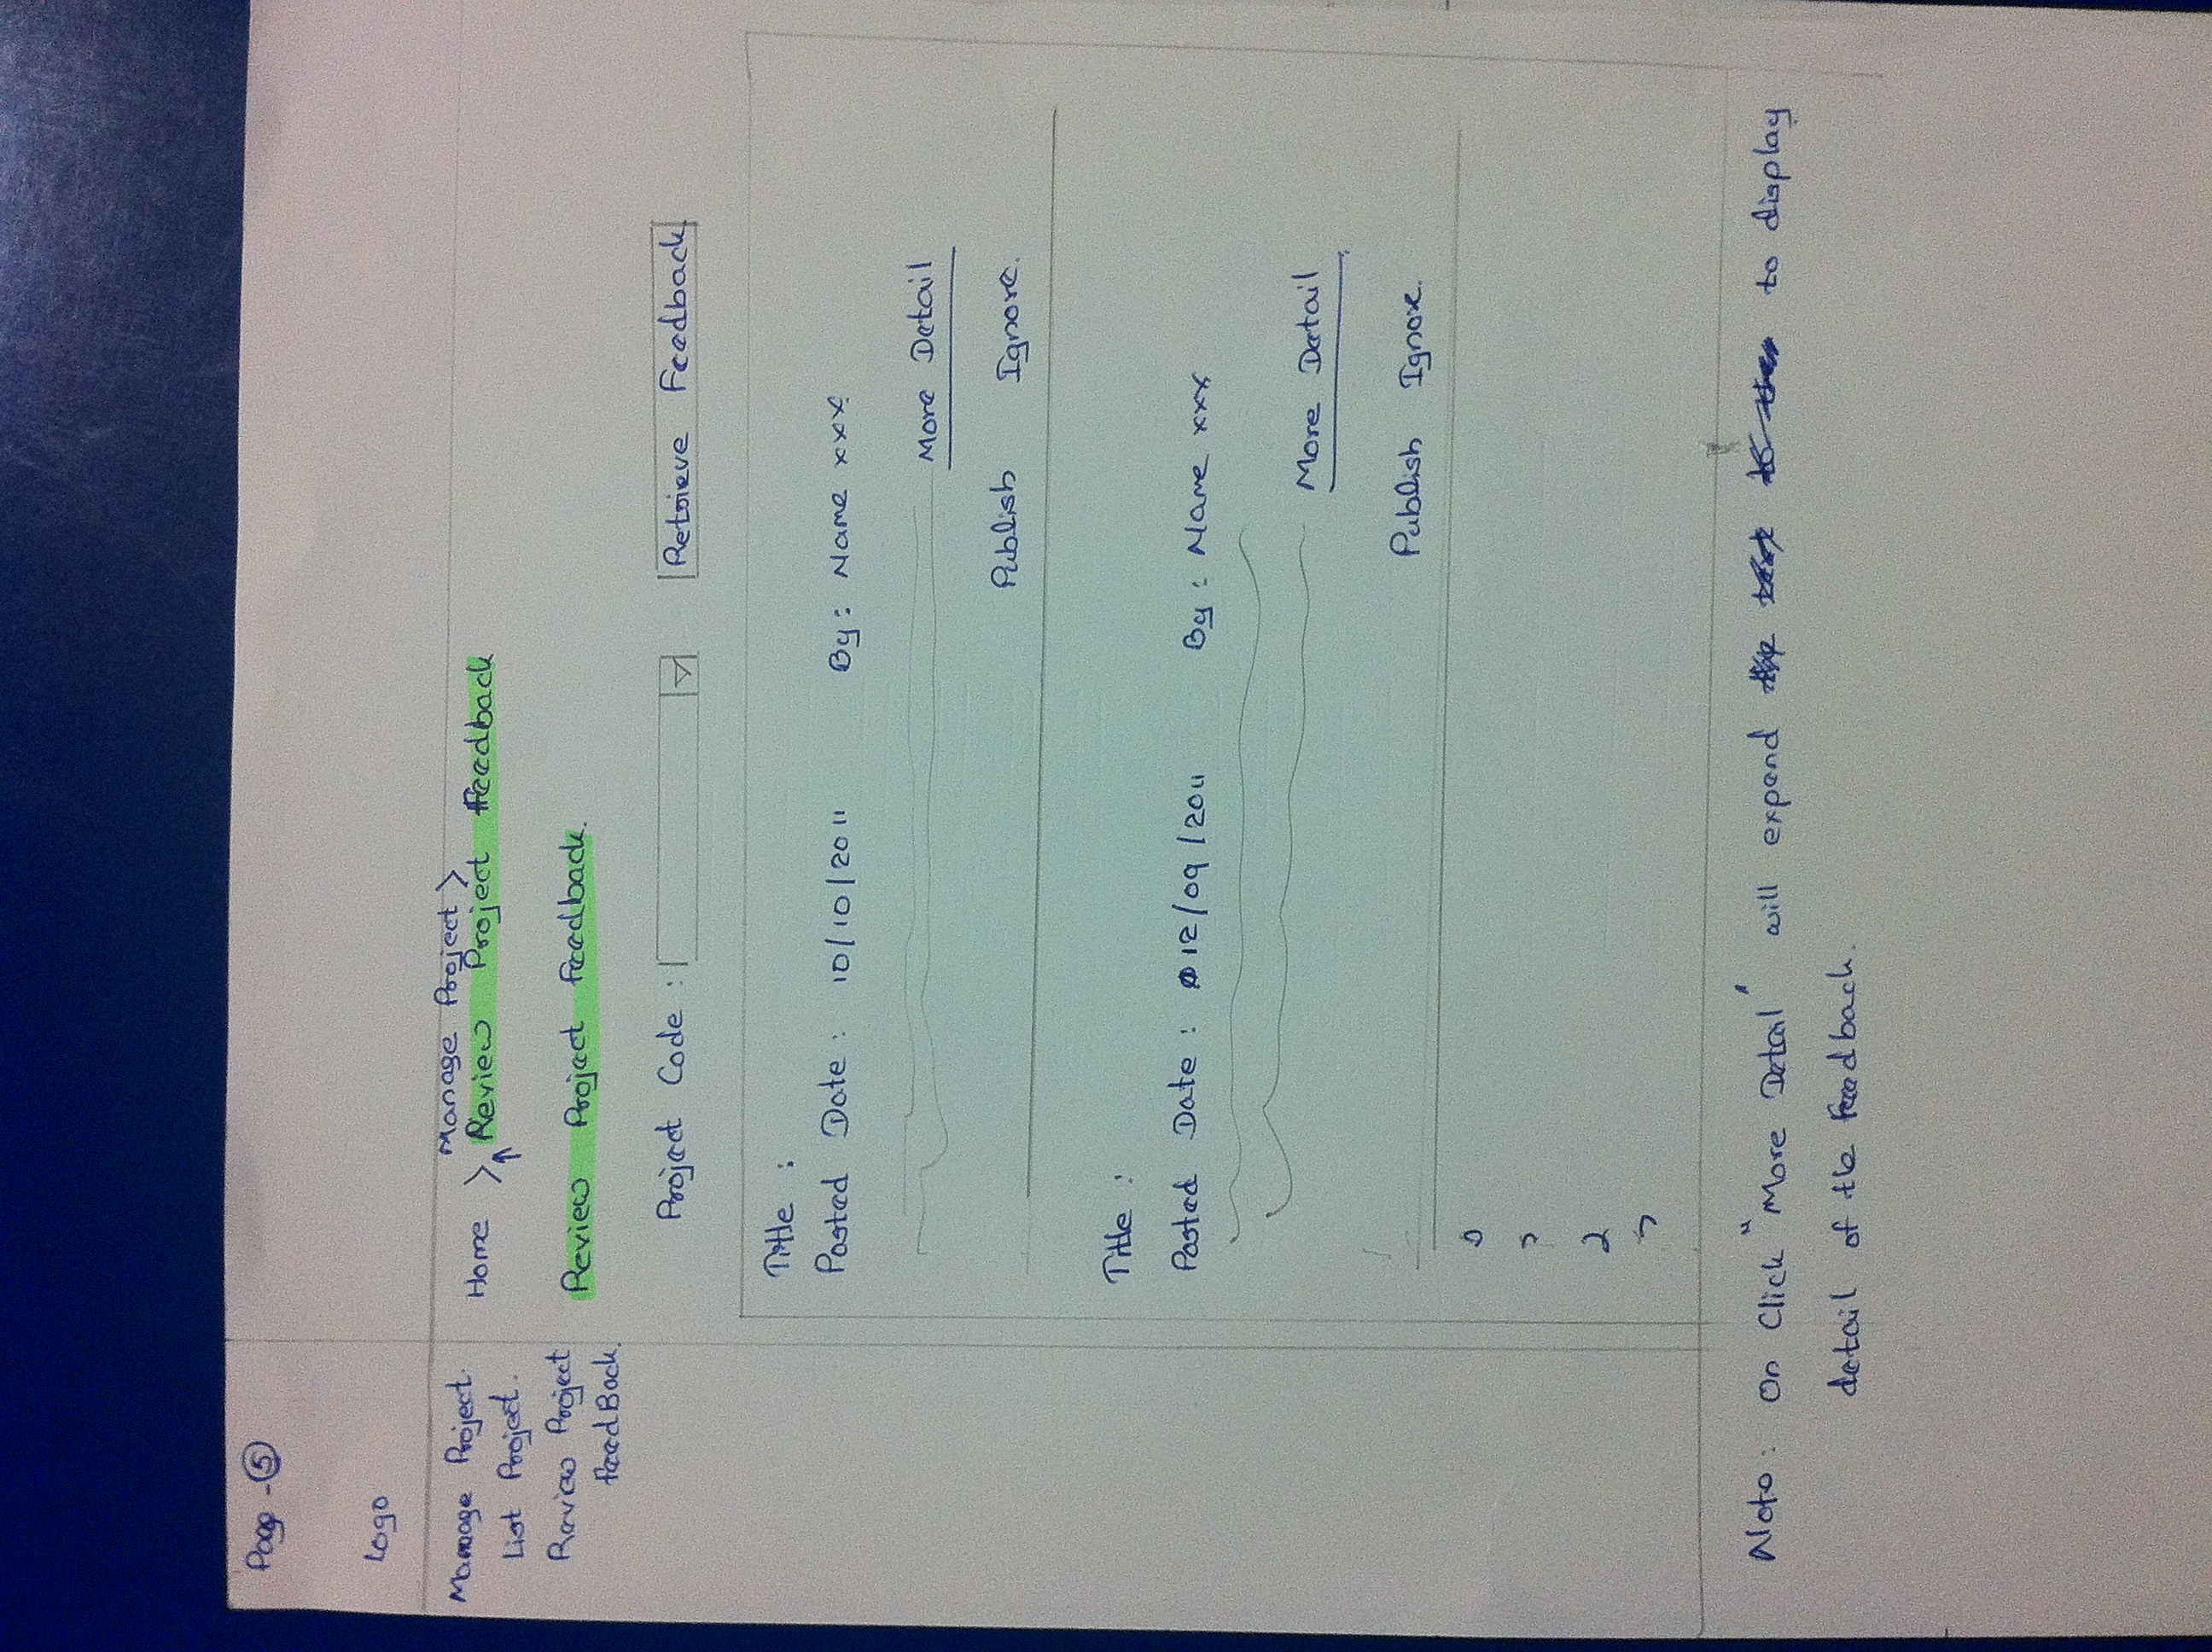 Page - 5
Logo
Manage Project.
List Project.
Review Project
feedBack.
Manage Project >
Home > Review Project Feedback
Review Project Feedback.
Project Code : Retrieve Feedback
Title :
Posted Date : 10/10/2011 By : Name xxx
More Detail
Publish Ignore.
Title :
Posted Date : 12/09/2011 By : Name xxx
More Detail
Publish Ignore.
Note : On Click "More Detail" will expand to display
detail of the feedback.